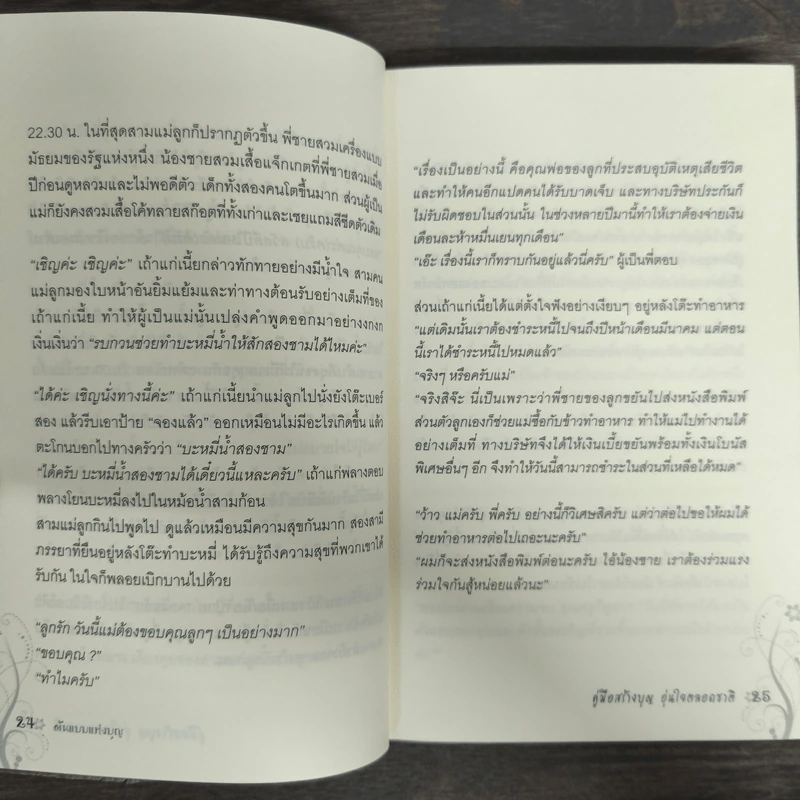 22.30 น. ในที่สุดสามแม่ลูกก็ปรากฏตัวขึ้น พี่ชายสวมเครื่องแบบ
มัธยมของรัฐแห่งหนึ่ง น้องชายสวมเสื้อแจ็กเกตที่พี่ชายสวมเมื่อ
ปีก่อนดูหลวมและไม่พอดีตัว เด็กทั้งสองคนโตขึ้นมาก ส่วนผู้เป็น
แม่ก็ยังคงสวมเสื้อโค้ทลายสก๊อตที่ทั้งเก่าและเชยแถมสีซีดตัวเดิม
“เชิญค่ะ เชิญค่ะ” เถ้าแก่เนี้ยกล่าวทักทายอย่างมีน้ำใจ สามคน
แม่ลูกมองใบหน้าอันยิ้มแย้มและท่าทางต้อนรับอย่างเต็มที่ของ
เถ้าแก่เนี้ย ทำให้ผู้เป็นแม่นั้นเปล่งคำพูดออกมาอย่างงกงก
เงิ่นเงิ่นว่า “รบกวนช่วยทำบะหมี่น้ำให้สักสองชามได้ไหมค่ะ”
“ได้ค่ะ เชิญนั่งทางนี้ค่ะ” เถ้าแก่เนี้ยนำแม่ลูกไปนั่งยังโต๊ะเบอร์
สอง แล้วรีบเอาป้าย “จองแล้ว” ออกเหมือนไม่มีอะไรเกิดขึ้น แล้ว
ตะโกนบอกไปทางครัวว่า “บะหมี่น้ำสองชาม”
“ได้ครับ บะหมี่น้ำสองชามได้เดี๋ยวนี้แหละครับ” เถ้าแก่พลางตอบ
พลางโยนบะหมี่ลงไปในหม้อน้ำสามก้อน
สามแม่ลูกกินไปพูดไป ดูแล้วเหมือนมีความสุขกันมาก สองสามี
ภรรยาที่ยืนอยู่หลังโต๊ะทำบะหมี่ ได้รับรู้ถึงความสุขที่พวกเขาได้
รับกัน ในใจก็พลอยเบิกบานไปด้วย
“ลูกรัก วันนี้แม่ต้องขอบคุณลูกๆ เป็นอย่างมาก”
“ขอบคุณ ?”
“ทำไมครับ”
24 ต้นแบบแห่งบุญ
“เรื่องเป็นอย่างนี้ คือคุณพ่อของลูกที่ประสบอุบัติเหตุเสียชีวิต
และทำให้คนอีกแปดคนได้รับบาดเจ็บ และทางบริษัทประกันก็
ไม่รับผิดชอบในส่วนนั้น ในช่วงหลายปีมานี้ทำให้เราต้องจ่ายเงิน
เดือนละห้าหมื่นเยนทุกเดือน”
“เอ๊ะ เรื่องนี้เราก็ทราบกันอยู่แล้วนี่ครับ” ผู้เป็นพี่ตอบ
ส่วนเถ้าแก่เนี้ยได้แต่ตั้งใจฟังอย่างเงียบๆ อยู่หลังโต๊ะทำอาหาร
“แต่เดิมนั้นเราต้องชำระหนี้ไปจนถึงปีหน้าเดือนมีนาคม แต่ตอน
นี้เราได้ชำระหนี้ไปหมดแล้ว”
“จริงๆ หรือครับแม่”
“จริงสิจ๊ะ นี่เป็นเพราะว่าพี่ชายของลูกขยันไปส่งหนังสือพิมพ์
ส่วนตัวลูกเองก็ช่วยแม่ซื้อกับข้าวทำอาหาร ทำให้แม่ไปทำงานได้
อย่างเต็มที่ ทางบริษัทจึงได้ให้เงินเบี้ยขยันพร้อมทั้งเงินโบนัส
พิเศษอื่นๆ อีก จึงทำให้วันนี้สามารถชำระในส่วนที่เหลือได้หมด”
“ว้าว แม่ครับ พี่ครับ อย่างนี้ก็วิเศษสิครับ แต่ว่าต่อไปขอให้ผมได้
ช่วยทำอาหารต่อไปเถอะนะครับ”
“ผมก็จะส่งหนังสือพิมพ์ต่อนะครับ ไอ้น้องชาย เราต้องร่วมแรง
ร่วมใจกันสู้หน่อยแล้วนะ”
คู่มือสร้างบุญ อุ่นใจตลอดชาติ 25